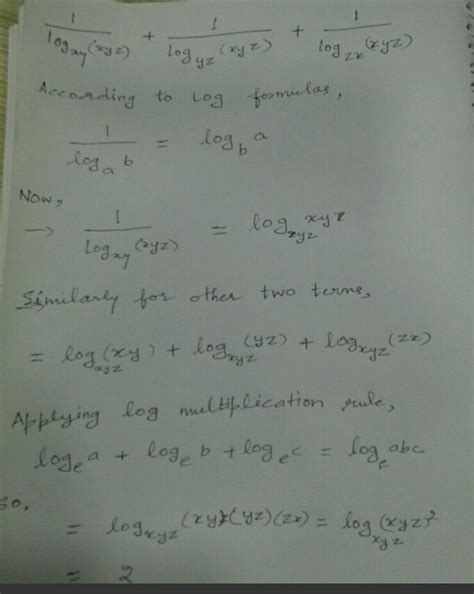 1/log_xy(xyz) + 1/log_yz(xyz) + 1/log_zx(xyz)
According to Log formulas,
1/log_a b = log_b a
Now,
→ 1/log_xy(xyz) = log_xyz xyz
Similarly for other two terms,
= log_xyz(xy) + log_xyz(yz) + log_xyz(zx)
Applying log multiplication rule,
log_e a + log_e b + log_e c = log_e abc
So,
= log_xyz (xy)(yz)(zx) = log_xyz (xyz)²
= 2